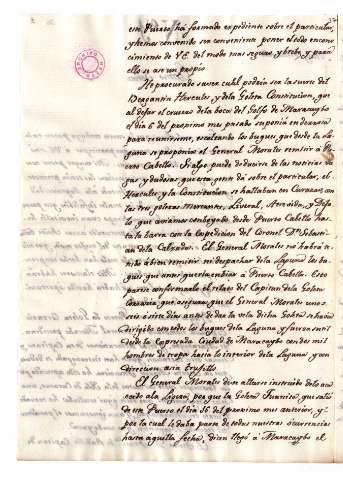 este Puerto, ha formado expediente sobre el particular,
y hemos convenido ser conveniente poner el todo en cono-
cimiento de V.E. del modo mas seguro, y breve, y para
ello se are un propio
He procurado saver cual podria ser la suerte del
Bergantin Hercules y dela Goleta Constitucion, que
al dejar el crucero dela boca del Golfo de Maracaybo
el dia 6 del proximo mes pasado suponia en demanda
para reunirseme, escoltando los buques, que desde la La-
guna se proponia el General Morales remitir á Pu-
erto Cabello. Si algo puede deducirse de las noticias va-
gas, y dudosas, que esta gente dá sobre el particular, el
Hercules, y la Constitucion, se hallaban en Curazao, con
las tres goletas Mercantes, Liveral, Atrevida, y Especu-
la que aviamos comboyado desde Puerto Cabello has-
ta la barra con la Espedicion del Coronel Dn. Sebasti-
an dela Calzada. El General Morales no habrá te-
nido á bien remitir, ni despachar dela Laguna los bu-
ques que antes queria embiar á Puerto Cabello. Esto
parece conformarle el relato del Capitan dela Goleta
que asegura que el General Morales unos
seis ó siete dias antes de dar la vela dicha Goleta se havia
dirigido con todos los buques dela Laguna y fuerza sutil
desde la expresada Ciudad de Maracaybo con dos mil
hombres de tropa hacia lo interior dela Laguna y con
direccion acia Trujillo
El General Morales deve allarse instruido delo acae-
cido ala Ligera, por que la Goleta Juanita, que salió
de este Puerto el dia 16 del proximo mes anterior, y
por la cual le daba parte de todas nuestras ocurrencias
hasta aquella fecha, dizen llegó á Maracaybo el